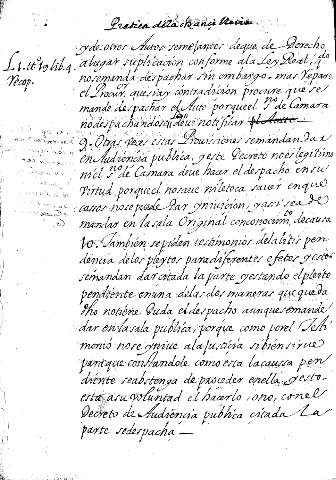 Practica de la Chancilleria
y de otros Autos semejantes de que de Derecho
a lugar suplicacion conforme a la Ley Real, q no
L. 1. tt.º 19 lib. 4
Recop.
se manda despachar sin embargo, mas repare
el Procur.r que si ay contradicion procure que se
mande despachar el Auto porque el s.no de Camara
no despachandose le deve notificar
9. Otras veces estas Provisiones se mandan da
en Audiencia publica, y este Decreto no es legitimo
ni el s.no de Camara deve hacer el despacho en su
virtud porque el no save ni le toca saver en que
casos no se puede dar ynivicion, y assi se a de
mandar en la sala Original con conocim.to de causa
10. Tambien se piden testimonios de la litis pen
dencia de los pleytos para diferentes efetos y esto
se mandan dar citada la parte, y estando el pleito
pendiente en una de las dos maneras que queda
dho no tiene duda el despacho aunque se mande
dar en la sala publica, porque como por el Testi
monio no se ynive a la justicia si bien sirve
para que constandole como esta la caussa pen
diente se abstenga de proceder en ella, y esto
esta a su voluntad el hacerlo, o no, con el
Decreto de Audiencia publica citada La
parte se despacha